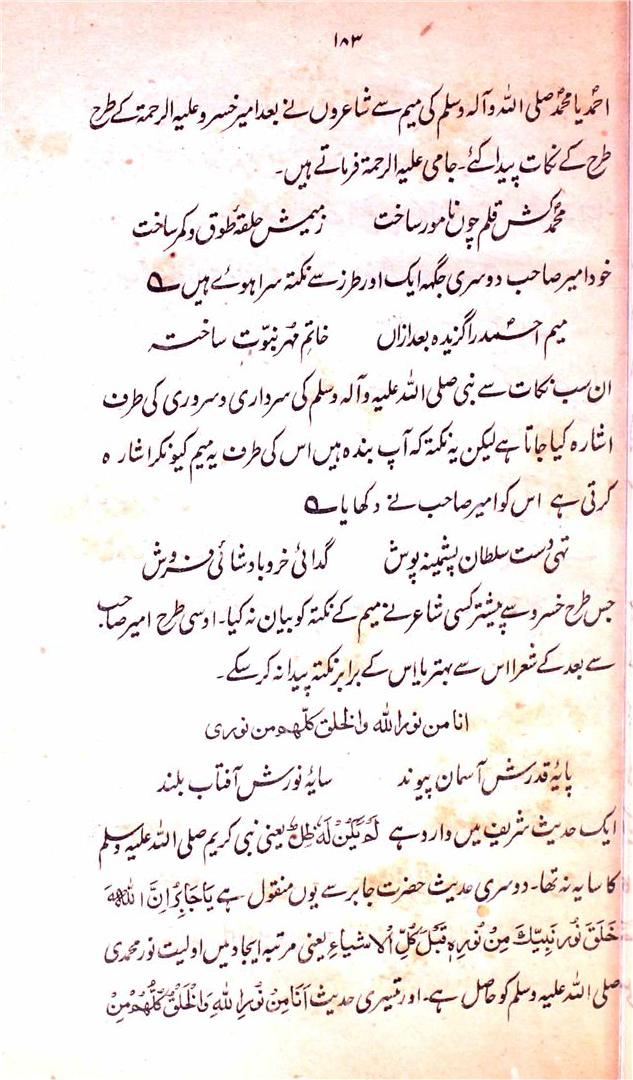 ۱۸۳
احمدؐ یا محمدؐ صلی اللہ و آلہ وسلم کی میم سے شاعروں نے بعد امیر خسرو علیہ الرحمۃ کے طرح
طرح کے نکات پیدا کئے۔ جامی علیہ الرحمۃ فرماتے ہیں۔
محمدؐ کش قلم چوں نامور ساخت زمیمش حلقۂ طوق و کمر ساخت
خود امیر صاحب دوسری جگہہ ایک اور طرز سے نکتہ سرا ہوئے ہیں ؎
میم احمد را گزیدہ بعد ازاں خاتم مہر نبوّت ساختہ
ان سب نکات سے نبی صلی اللہ علیہ و آلہ وسلم کی سرداری و سروری کی طرف
اشارہ کیا جاتا ہے لیکن یہ نکتہ کہ آپ بندہ ہیں اس کی طرف یہ میم کیونکر اشارہ
کرتی ہے اس کو امیر صاحب نے دکھایا ؎
تہی دست سلطان پشمینہ پوش گدائی خر و بادشائی فروش
جس طرح خسرو سے پیشتر کسی شاعر نے میم کے نکتہ کو بیان نہ کیا۔ اوسی طرح امیر صاحب
سے بعد کے شعرا اس سے بہتر یا اس کے برابر نکتہ پیدا نہ کر سکے۔
انا من نور اللہ والخلق کلھم من نوری
پایۂ قدرش آسمان پیوند سایۂ نورش آفتاب بلند
ایک حدیث شریف میں وارد ہے لَمْ یَکُنْ لَہٗ ظِلٌّ یعنی نبی کریم صلی اللہ علیہ وسلم
کا سایہ نہ تھا۔ دوسری حدیث حضرت جابر سے یوں منقول ہے یَا جَابِرُ اِنَّ اللّٰہَ
خَلَقَ نُورَ نَبِیِّکَ مِنْ نُورِہٖ قَبْلَ کُلِّ الْاَشیاءِ یعنی مرتبہ ایجاد میں اولیت نور محمدی
صلی اللہ علیہ وسلم کو حاصل ہے۔ اور تیسری حدیث اَنَا مِنْ نُوْرِ اللّٰہِ وَالْخَلْقُ کُلُّھُمْ مِنْ